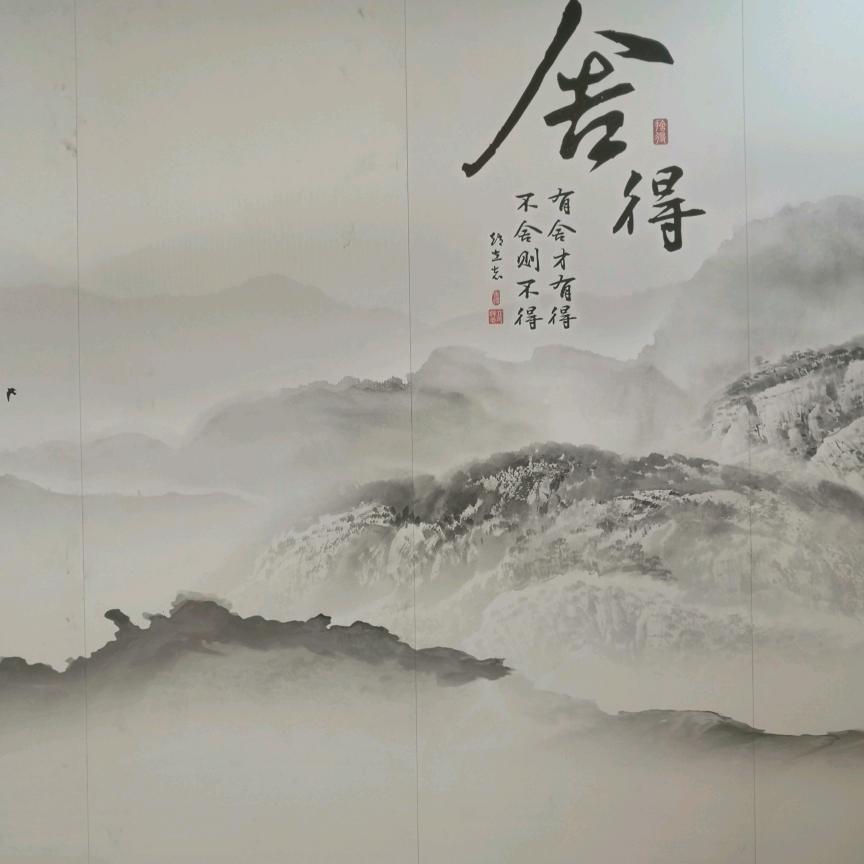 舍得
有舍才有得
不舍则不得